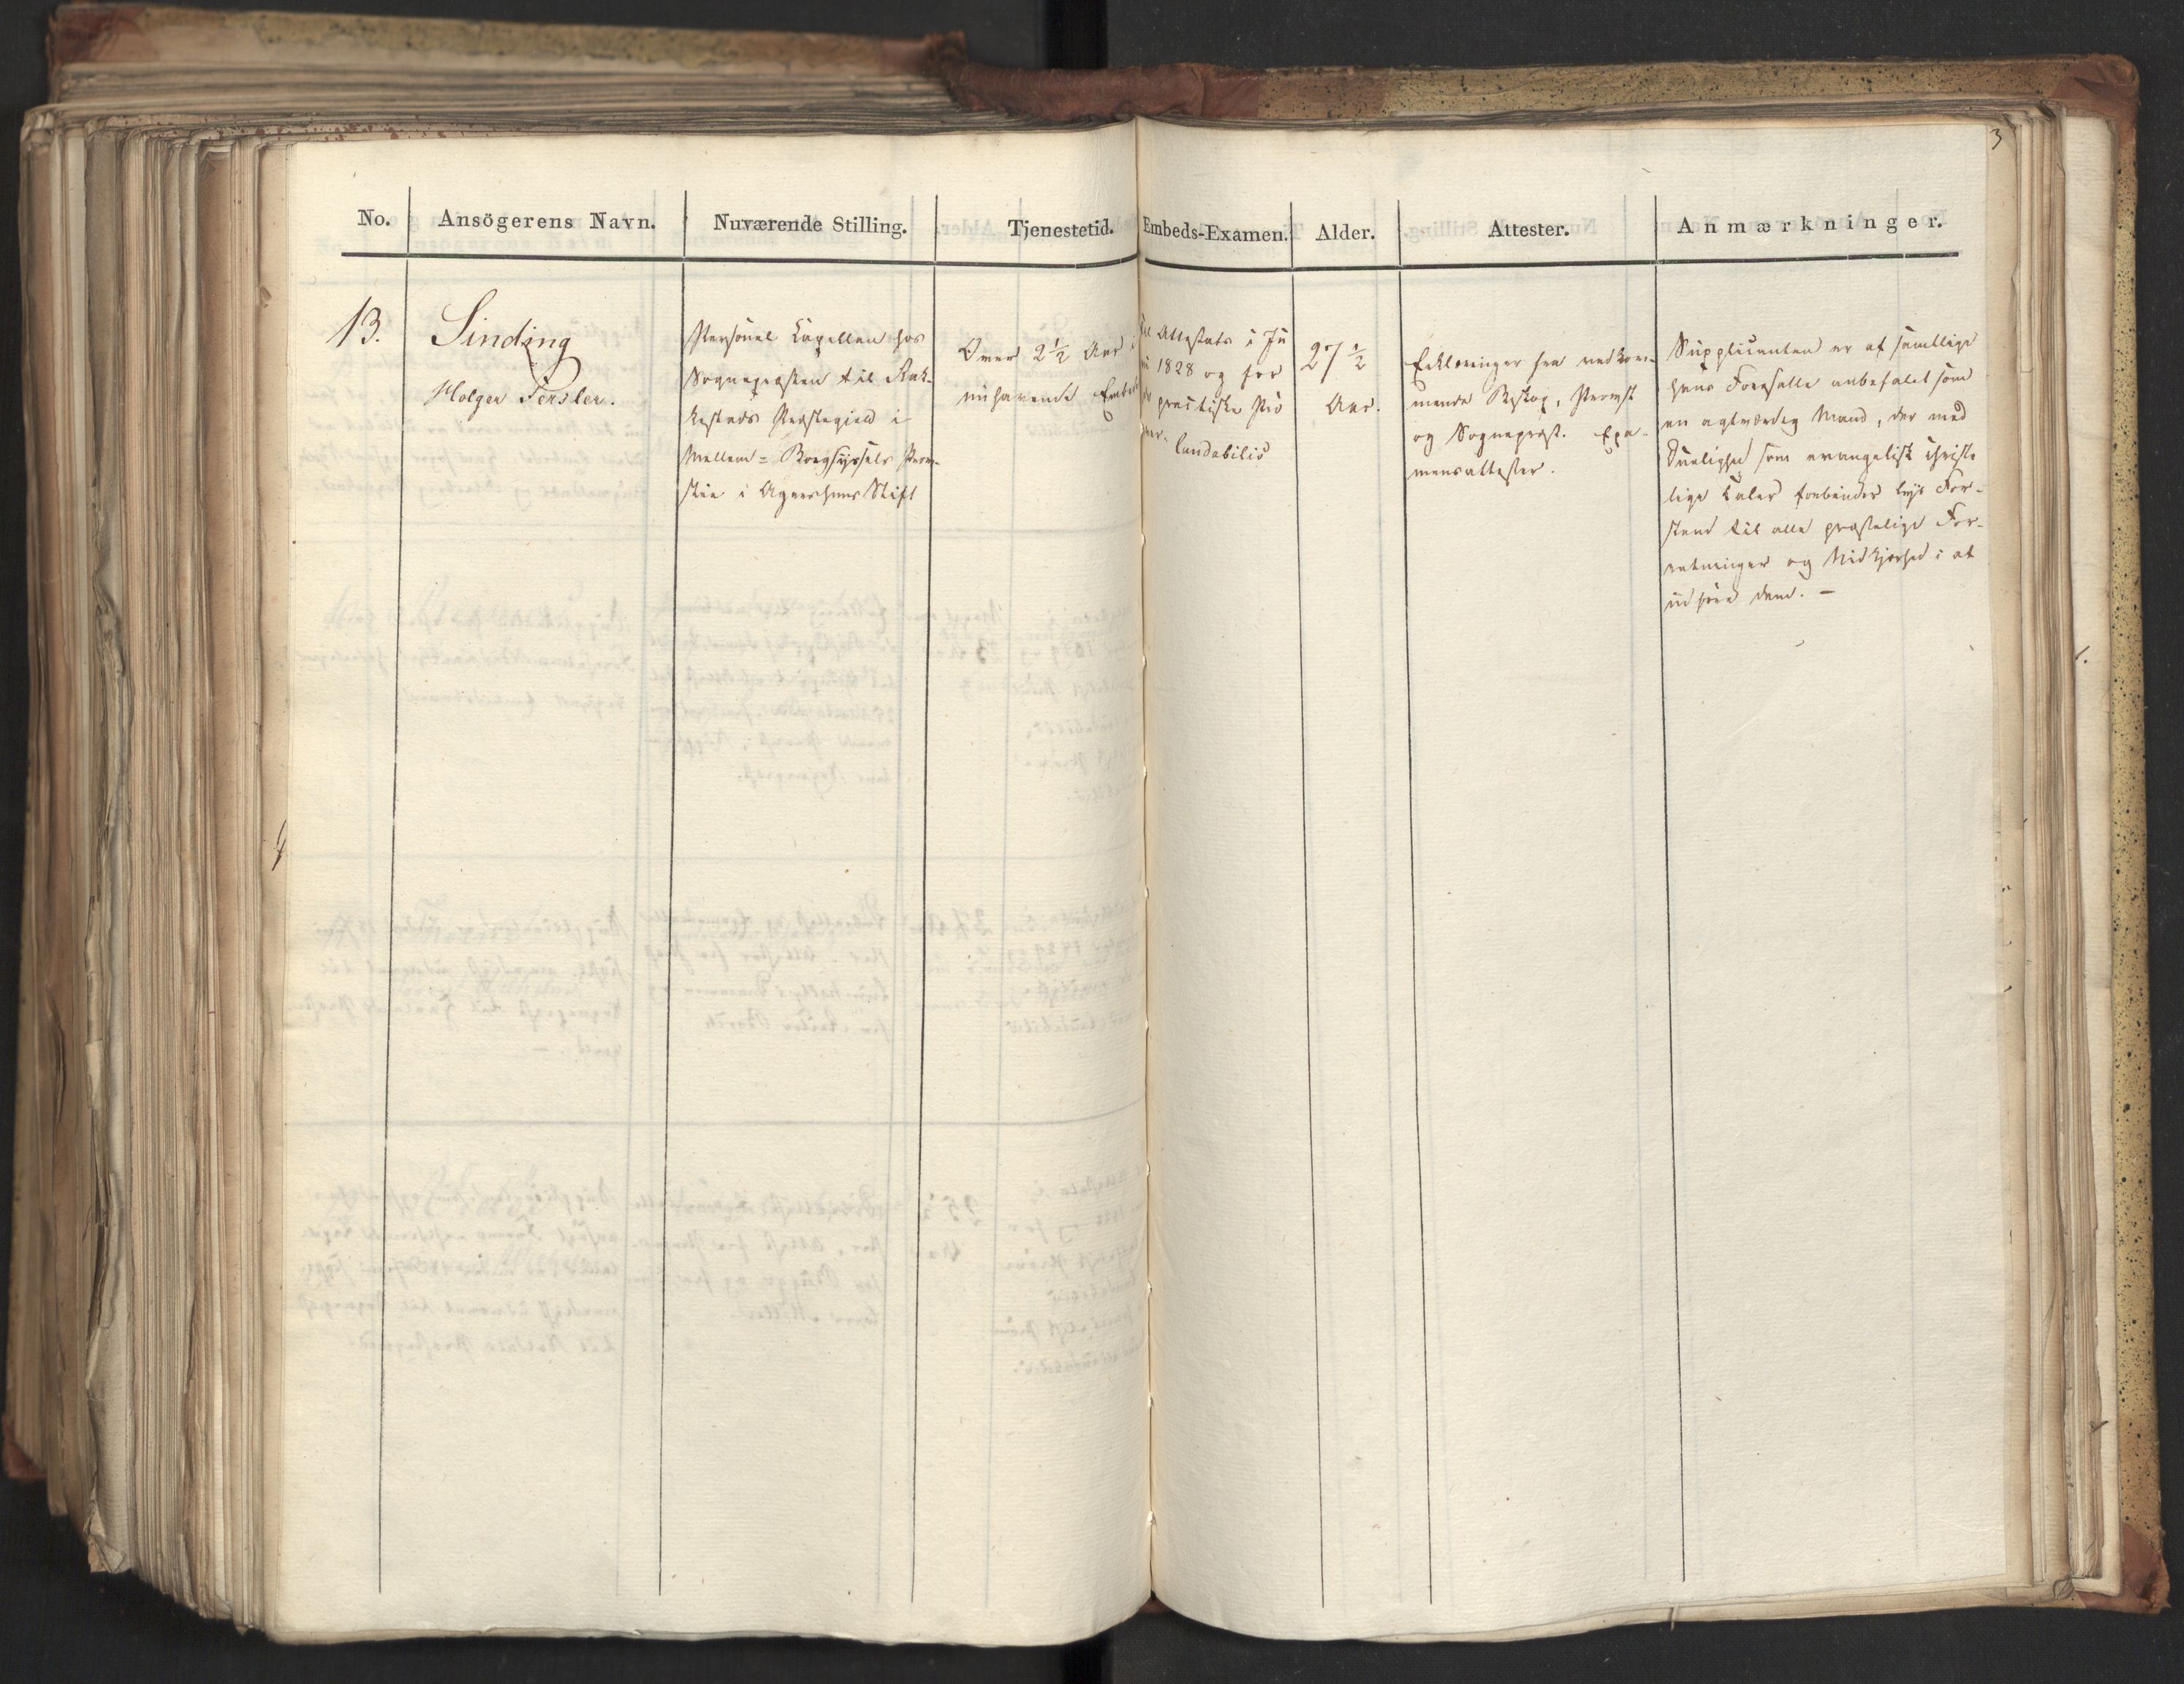 3
No. Ansögerens Navn. Nuværende Stilling. Tjenestetid. Embeds-Examen. Alder. Attester. Anmærkninger.
13.
Sinding
Holger Fersler.
Personel Capellan hos
Sognepræsten til Rak-
kestads Præstegield i
Mellem=Borgsyssels Prov-
stie i Agershuus Stift
Over 2½ Aar i
nuhavende Embede
Attestats i Ju
1828 og for
practiske Prö
ver. laudabilis
27½
Aar.
Erklæringer fra vedkom-
mende Biskop, Provst
og Sognepræst. Exa-
mensattester.
Supplicanten er af samtlige
hans Foresatte anbefalet som
en agtværdig Mand, der med
Duelighed som evangelisk christe
lige Taler forbinder lys For-
stand til alle præstelige For-
retninger og Nidkjærhed i at
udføre dem. -